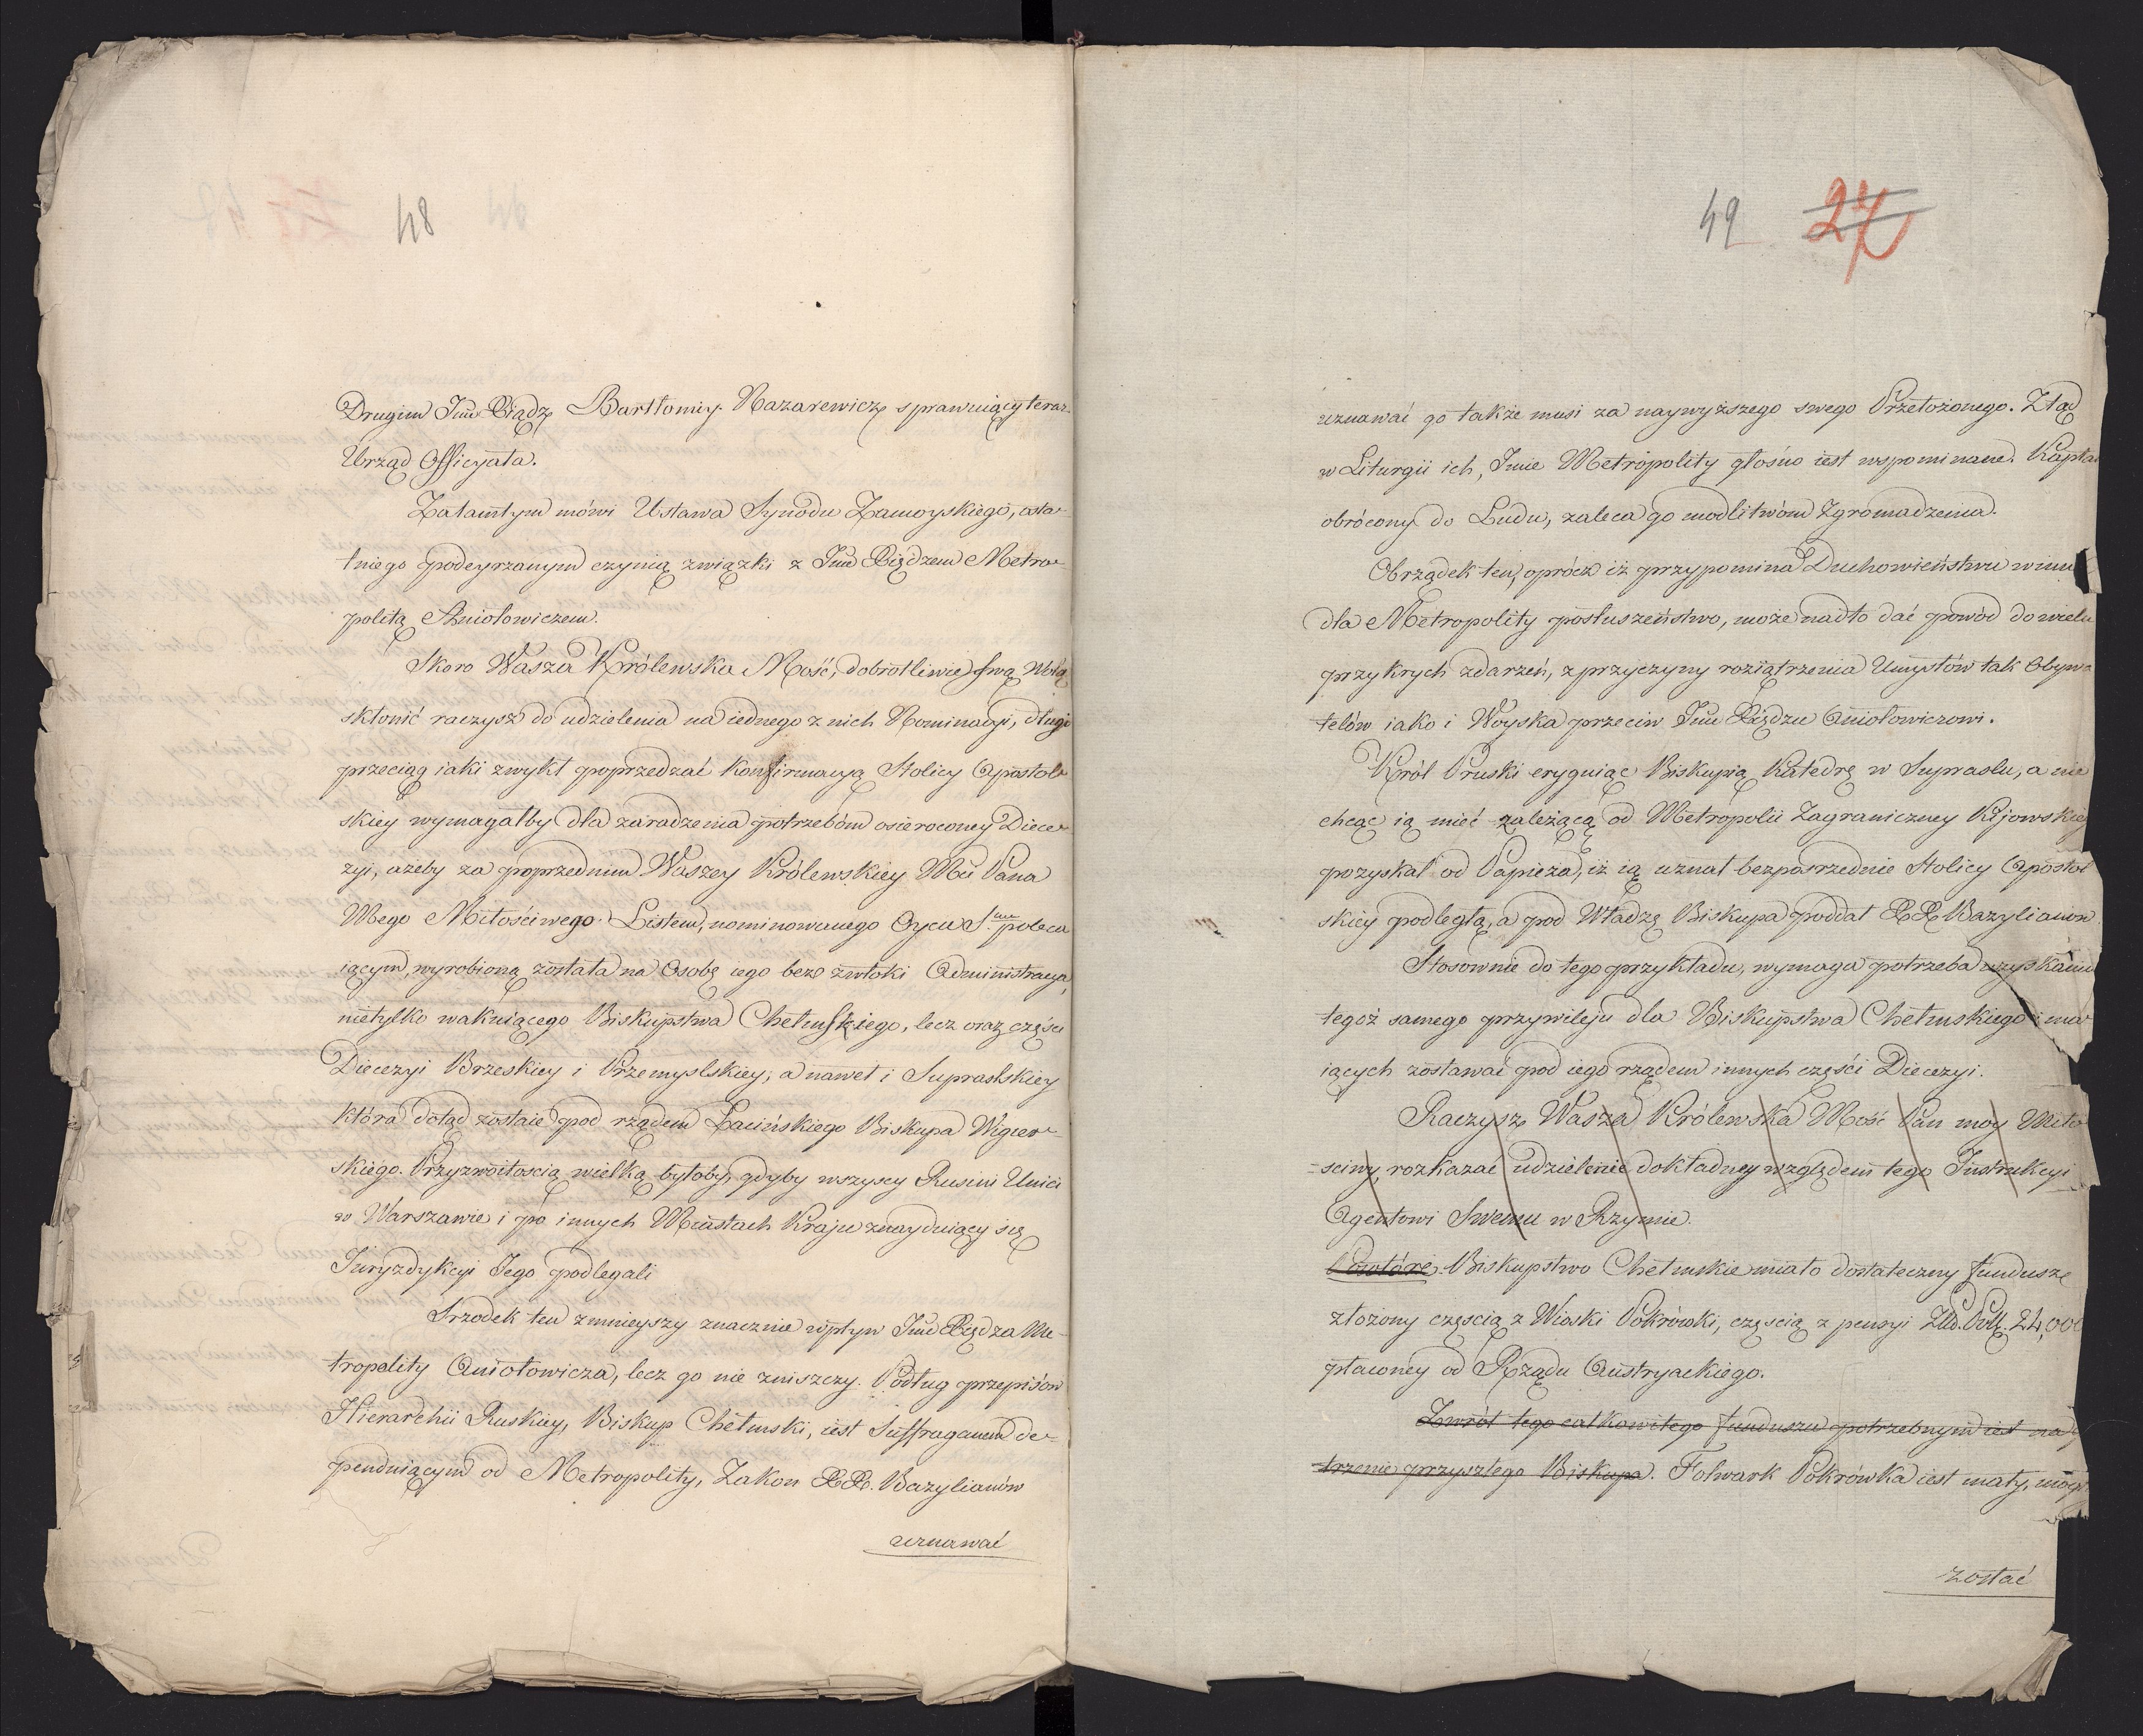 48
Drugim Jmć Xiądz Bartłomiy Nazarewicz sprawuiący teraz
Urząd Officyała.
Zatamtym mówi Ustawa Synodu Zamoyskiego, osta-
tniego podeyrzanym czynią związki z Jmć Xiędzem Metro-
politą Aniołowiczem.
Skoro Wasza Królewska Mość, dobrotliwie swą Wolą
skłonić raczysz do udzielenia na iednego z nich Nominacyi, długi
przeciąg iaki zwykł poprzedzać konfirmacyą Stolicy Apostol-
skiey wymagałby dla zaradzenia potrzebom osieroconey Diece-
zyi, ażeby za poprzednim Waszey Królewskiey Mci Pana
Mego Miłościwego Listem, nominowanego Oycu S.mu poleca
iącym, wyrobioną została na Osobę iego bez zwłoki Administracya,
nietylko wakuiącego Biskupstwa Chełmskiego, lecz oraz części
Diecezyi Brzeskiey i Przemyslskiey, a nawet i Supraslskiey
która dotąd zostaie pod rządem Łacińskiego Biskupa Wigier-
skiego. Przyzwoitością wielką byłoby, gdyby wszyscy Rusini Unici
w Warszawie i po innych Miastach Kraju znayduiący się
Juryzdykcyi Jego podlegali
Srzodek ten zmnieyszy znacznie wpływ Jmć Xiędza Me-
tropolity Aniołowicza, lecz go nie zniszczy. Podług przepisów
Hierarchii Ruskiey, Biskup Chełmski, iest Suffraganem de-
penduiącym od Metropolity, Zakon XX. Bazylianów
uznawać
49 27
uznawać go także musi za naywyższego swego Przełożonego. Ztąd
w Liturgii ich, Imie Metropolity głośno iest wspominane. Kapłan
obrócony do Ludu, zaleca go modlitwom Zgromadzenia.
Obrządek ten, oprócz iż przypomina Duchowieństwu winne
dla Metropolity posłuszeństwo, może nadto dać powód do wielu
przykrych zdarzeń, z przyczyny roziątrzenia Umysłów tak Obywa
telów iako i Woyska przeciw Jmć Xiędzu Aniołowiczowi.
Król Pruski eryguiąc Biskupią Katedrę w Supraslu, a nie
chcąc ią mieć zależącą od Metropolii Zagraniczney Kijowskiey
pozyskał od Papieża, iż ią uznał bezpośrzednie Stolicy Apostol
skiey podległą, a pod Władzę Biskupa poddał XX Bazylianów
Stosownie do tego przykładu, wymaga potrzeba uzyskania
tegoż samego przywileju dla Biskupstwa Chełmskiego i ma
iących zostawać pod iego rządem innych części Diecezyi.
Raczysz Wasza Królewska Mość Pan moy Miło
-ściwy, rozkazać udzielenie dokładney względem tego Instrukcyi
Agentowi Swemu w Rzymie.
Powtóre. Biskupstwo Chełmskie miało dostateczny fundusz
złożony częscią z Wioski Pokrówki, częscią z pensyi Złł. Poll. 24,000
płaconey od Rządu Austryackiego.
Zwrót tego całkowitego funduszu potrzebnym iest na
trzenie przyszłego Biskupa. Folwark Pokrówka iest mały,
zostać